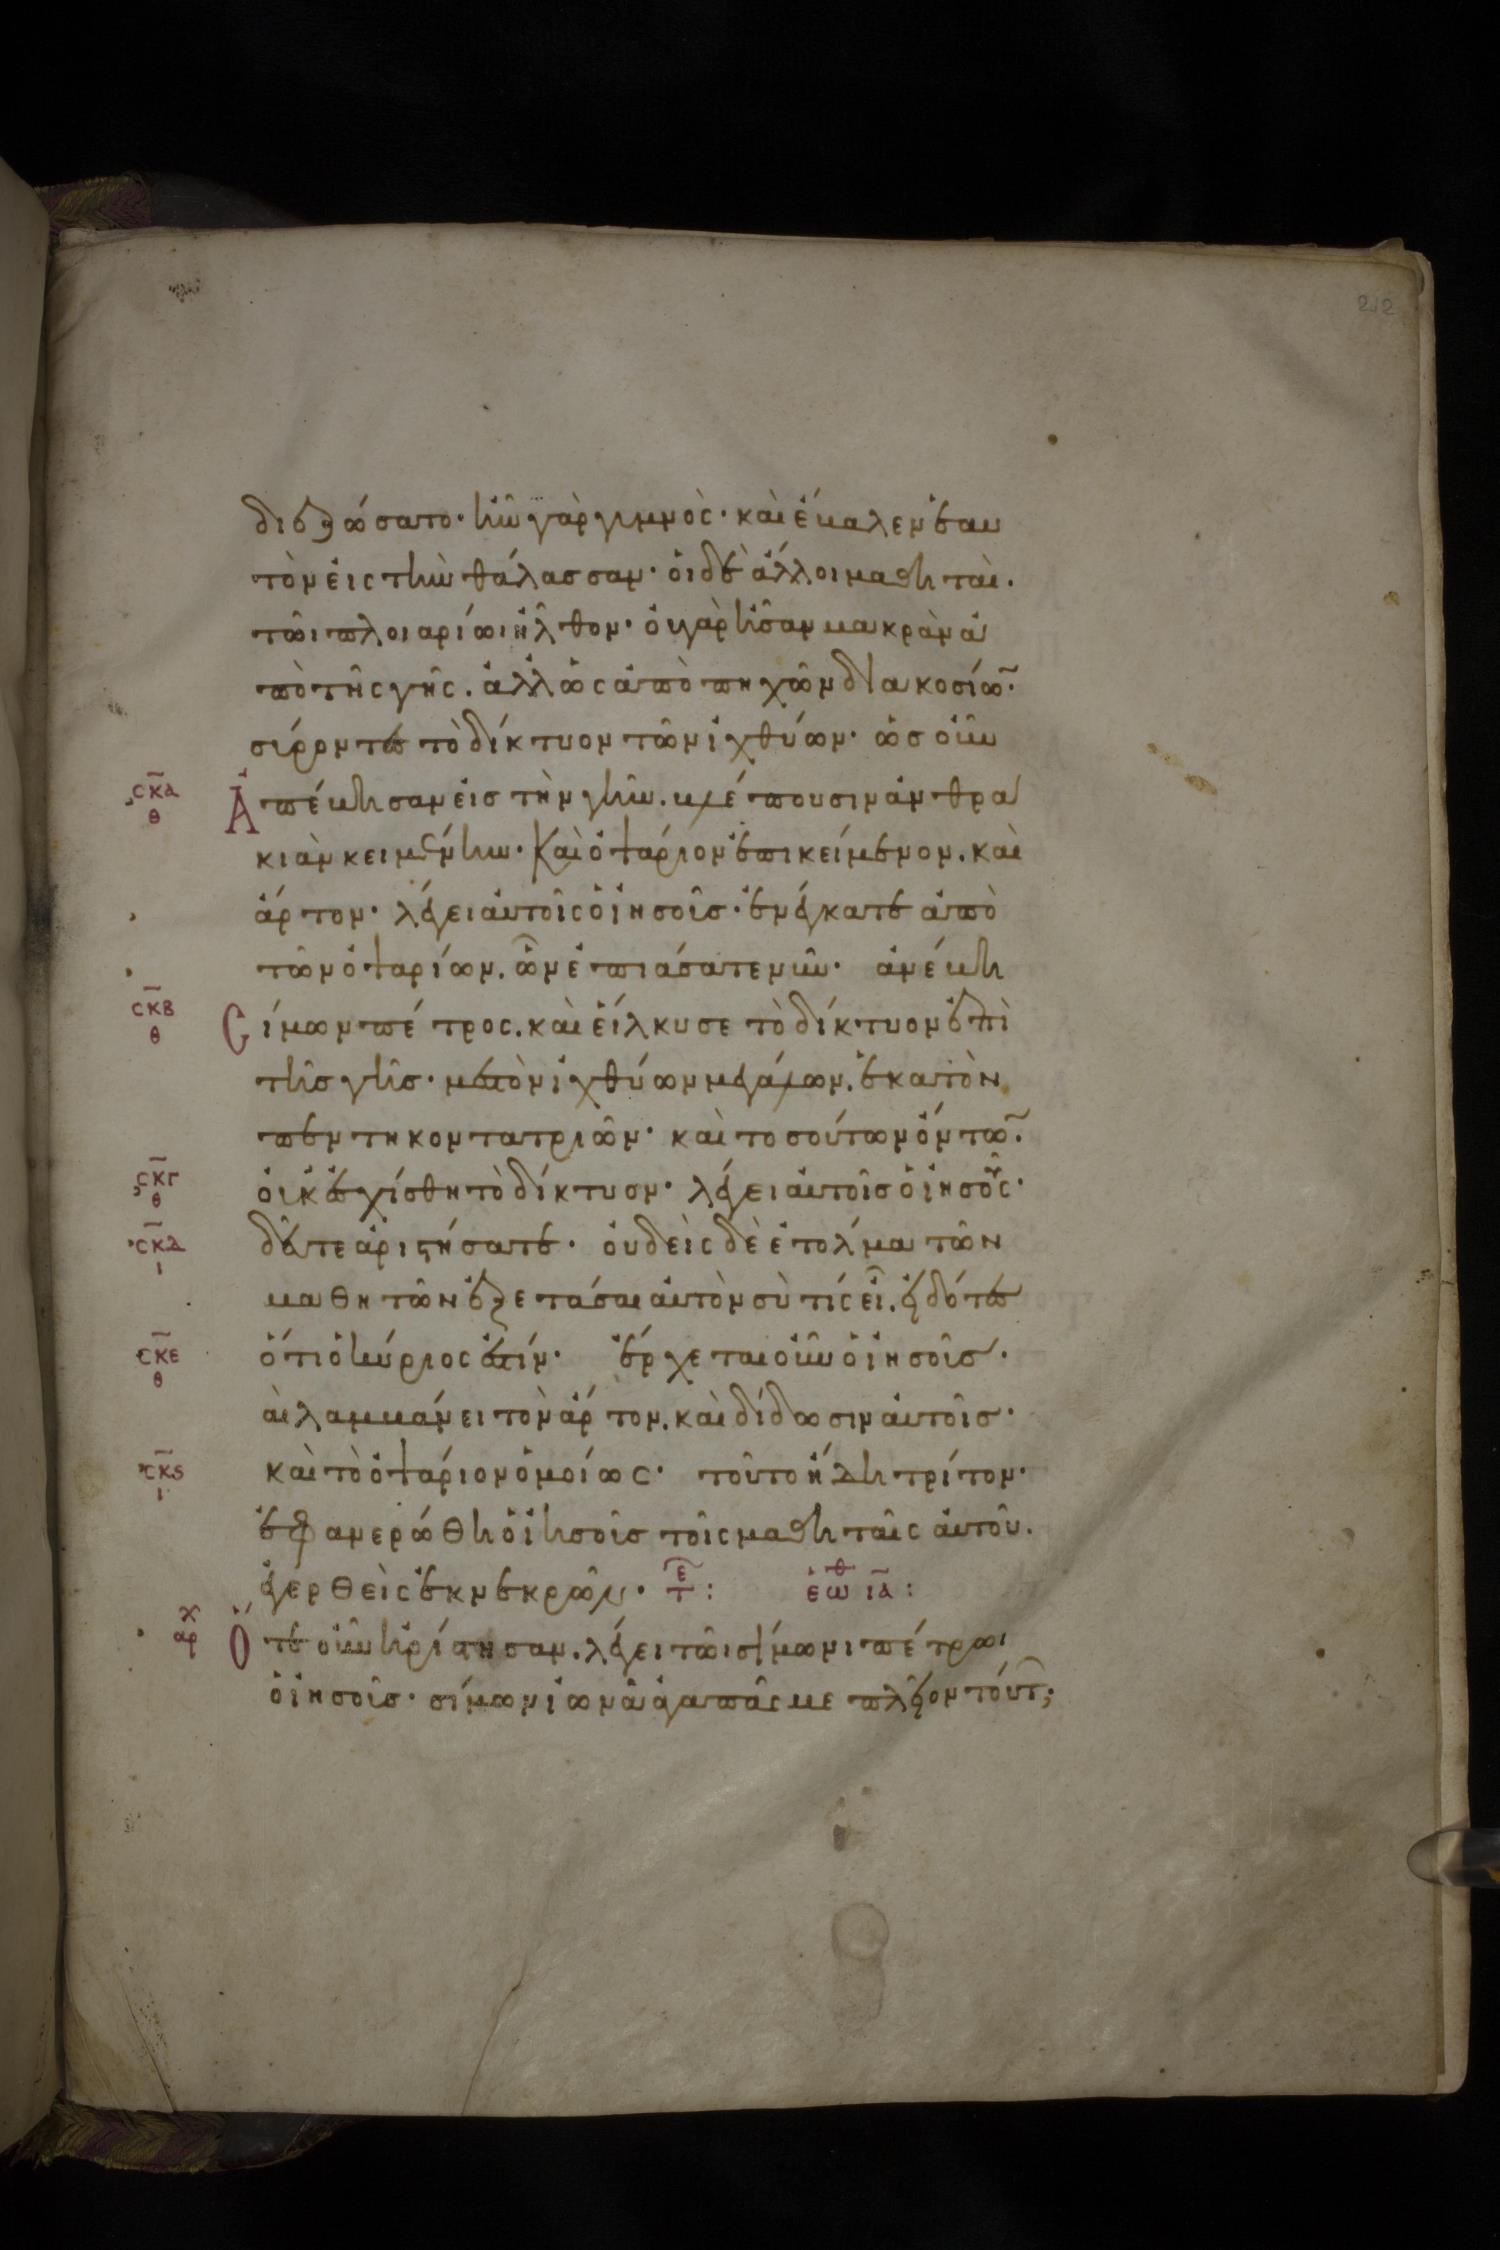 212
διεζώσατο· ἦν γὰρ γυμνὸς· καὶ ἔβαλεν ἑαυ
τὸν εἰς τὴν θάλασσαν· οἱ δὲ ἄλλοι μαθηταὶ.
τῶι πλοιαρίωι ἦλθον· οὐ γὰρ ἦσαν μακρὰν ἀ
πὸ τῆς γῆς. ἀλλ' ὡς ἀπὸ πηχῶν διακοσίω~·
σύροντες τὸ δίκτυον τῶν ἰχθύων· ὡσ οὖν
σκα
θ
Ἀπέβησαν εἰσ τὴν γῆν. βλέπουσιν ἀνθρα
κιὰν κειμένην· καὶ ὀψάριον ἐπικείμενον. καὶ
ἄρτον· λέγει αὐτοῖς ὁ ἰησοῦσ· ἐνέγκατε ἀπὸ
τῶν ὀψαρίων. ὧν ἐπιάσατε νῦν· ἀνέβη
σκβ
θ
Σίμων πέτρος. καὶ εἵλκυσε τὸ δίκτυον ἐπὶ
τῆσ γῆσ· μεστὸν ἰχθύων μεγάλων. ἑκατὸν
πεντηκοντατριῶν· καὶ τοσούτων ὄντω~.
σκγ
θ
οὐκ ἐσχίσθη τὸ δίκτυον· λέγει αὐτοῖσ ὁ ἰησοῦς·
σκδ
ι
δεῦτε ἀριστήσατε· οὐδεὶς δὲ ἐτόλμα τῶν
μαθητῶν ἐξετάσαι αὐτὸν σὺ τίς εἶ. εἰδότες
σκε
θ
ὅτι ὁ κύριος ἐστίν· ἔρχεται οὖν ὁ ἰησοῦσ·
καὶ λαμβάνει τὸν ἄρτον. καὶ δίδωσιν αὐτοῖσ·
σκς
ι
καὶ τὸ ὀψάριον ὁμοίως· τοῦτο ἤδη τρίτον·
ἐφανερώθη ὁ ἰησοῦσ τοῖς μαθηταῖς αὐτοῦ.
ἐγερθεὶς ἐκ νεκρῶν· τε: ἑωθ ια:
αρχ
Ὅτε οὖν ἠρίστησαν. λέγει τῶι σίμωνι πέτρωι
ὁ ἰησοῦσ· σίμων ἰωνᾶ ἀγαπᾶς με πλεῖον τούτ;